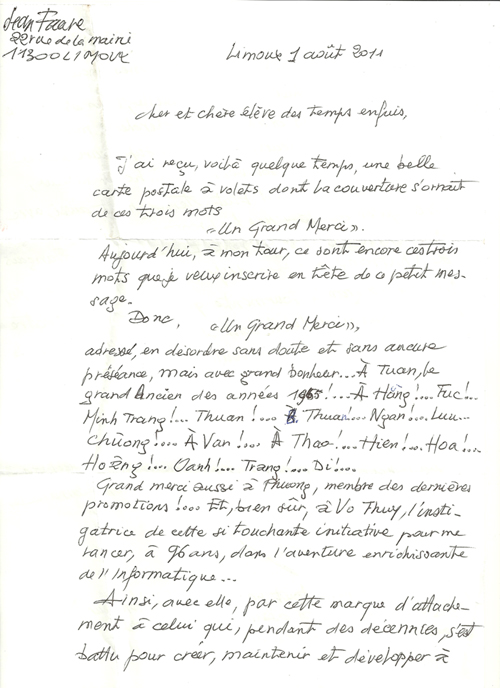 Jean Faure
22 rue de la mairie
11300 LIMOUX
Limoux 1 août 2011
cher et chère élève des temps enfuis,
J'ai reçu, voilà quelque temps, une belle
carte postale à volets dont la couverture s'ornait
de ces trois mots
«Un Grand Merci».
Aujourd'hui, à mon tour, ce sont encore ces trois
mots que je veux inscrire en tête de ce petit mes-
sage.
Donc, «Un Grand Merci»,
adressé, en désordre sans doute et sans aucune
préséance, mais avec grand bonheur... À Tuan, le
grand Ancien des années 1955!... À Hång!... Fuc!...
Minh Trang!... Thuan!... À Thuan!... Ngan!... Luu...
Chuong!... À Van!... À Thao!... Hien!... Hoa!...
Hoång!... Oanh!... Trang!... Di!...
Grand merci aussi à Phuong, membre des dernières
promotions!... Et, bien sûr, à Vo Thuy, l'insti-
gatrice de cette si touchante initiative pour me
lancer, à 96 ans, dans l'aventure enrichissante
de l'Informatique...
Ainsi, avec elle, par cette marque d'attache-
ment à celui qui, pendant des décennies, s'est
battu pour créer, maintenir et développer à